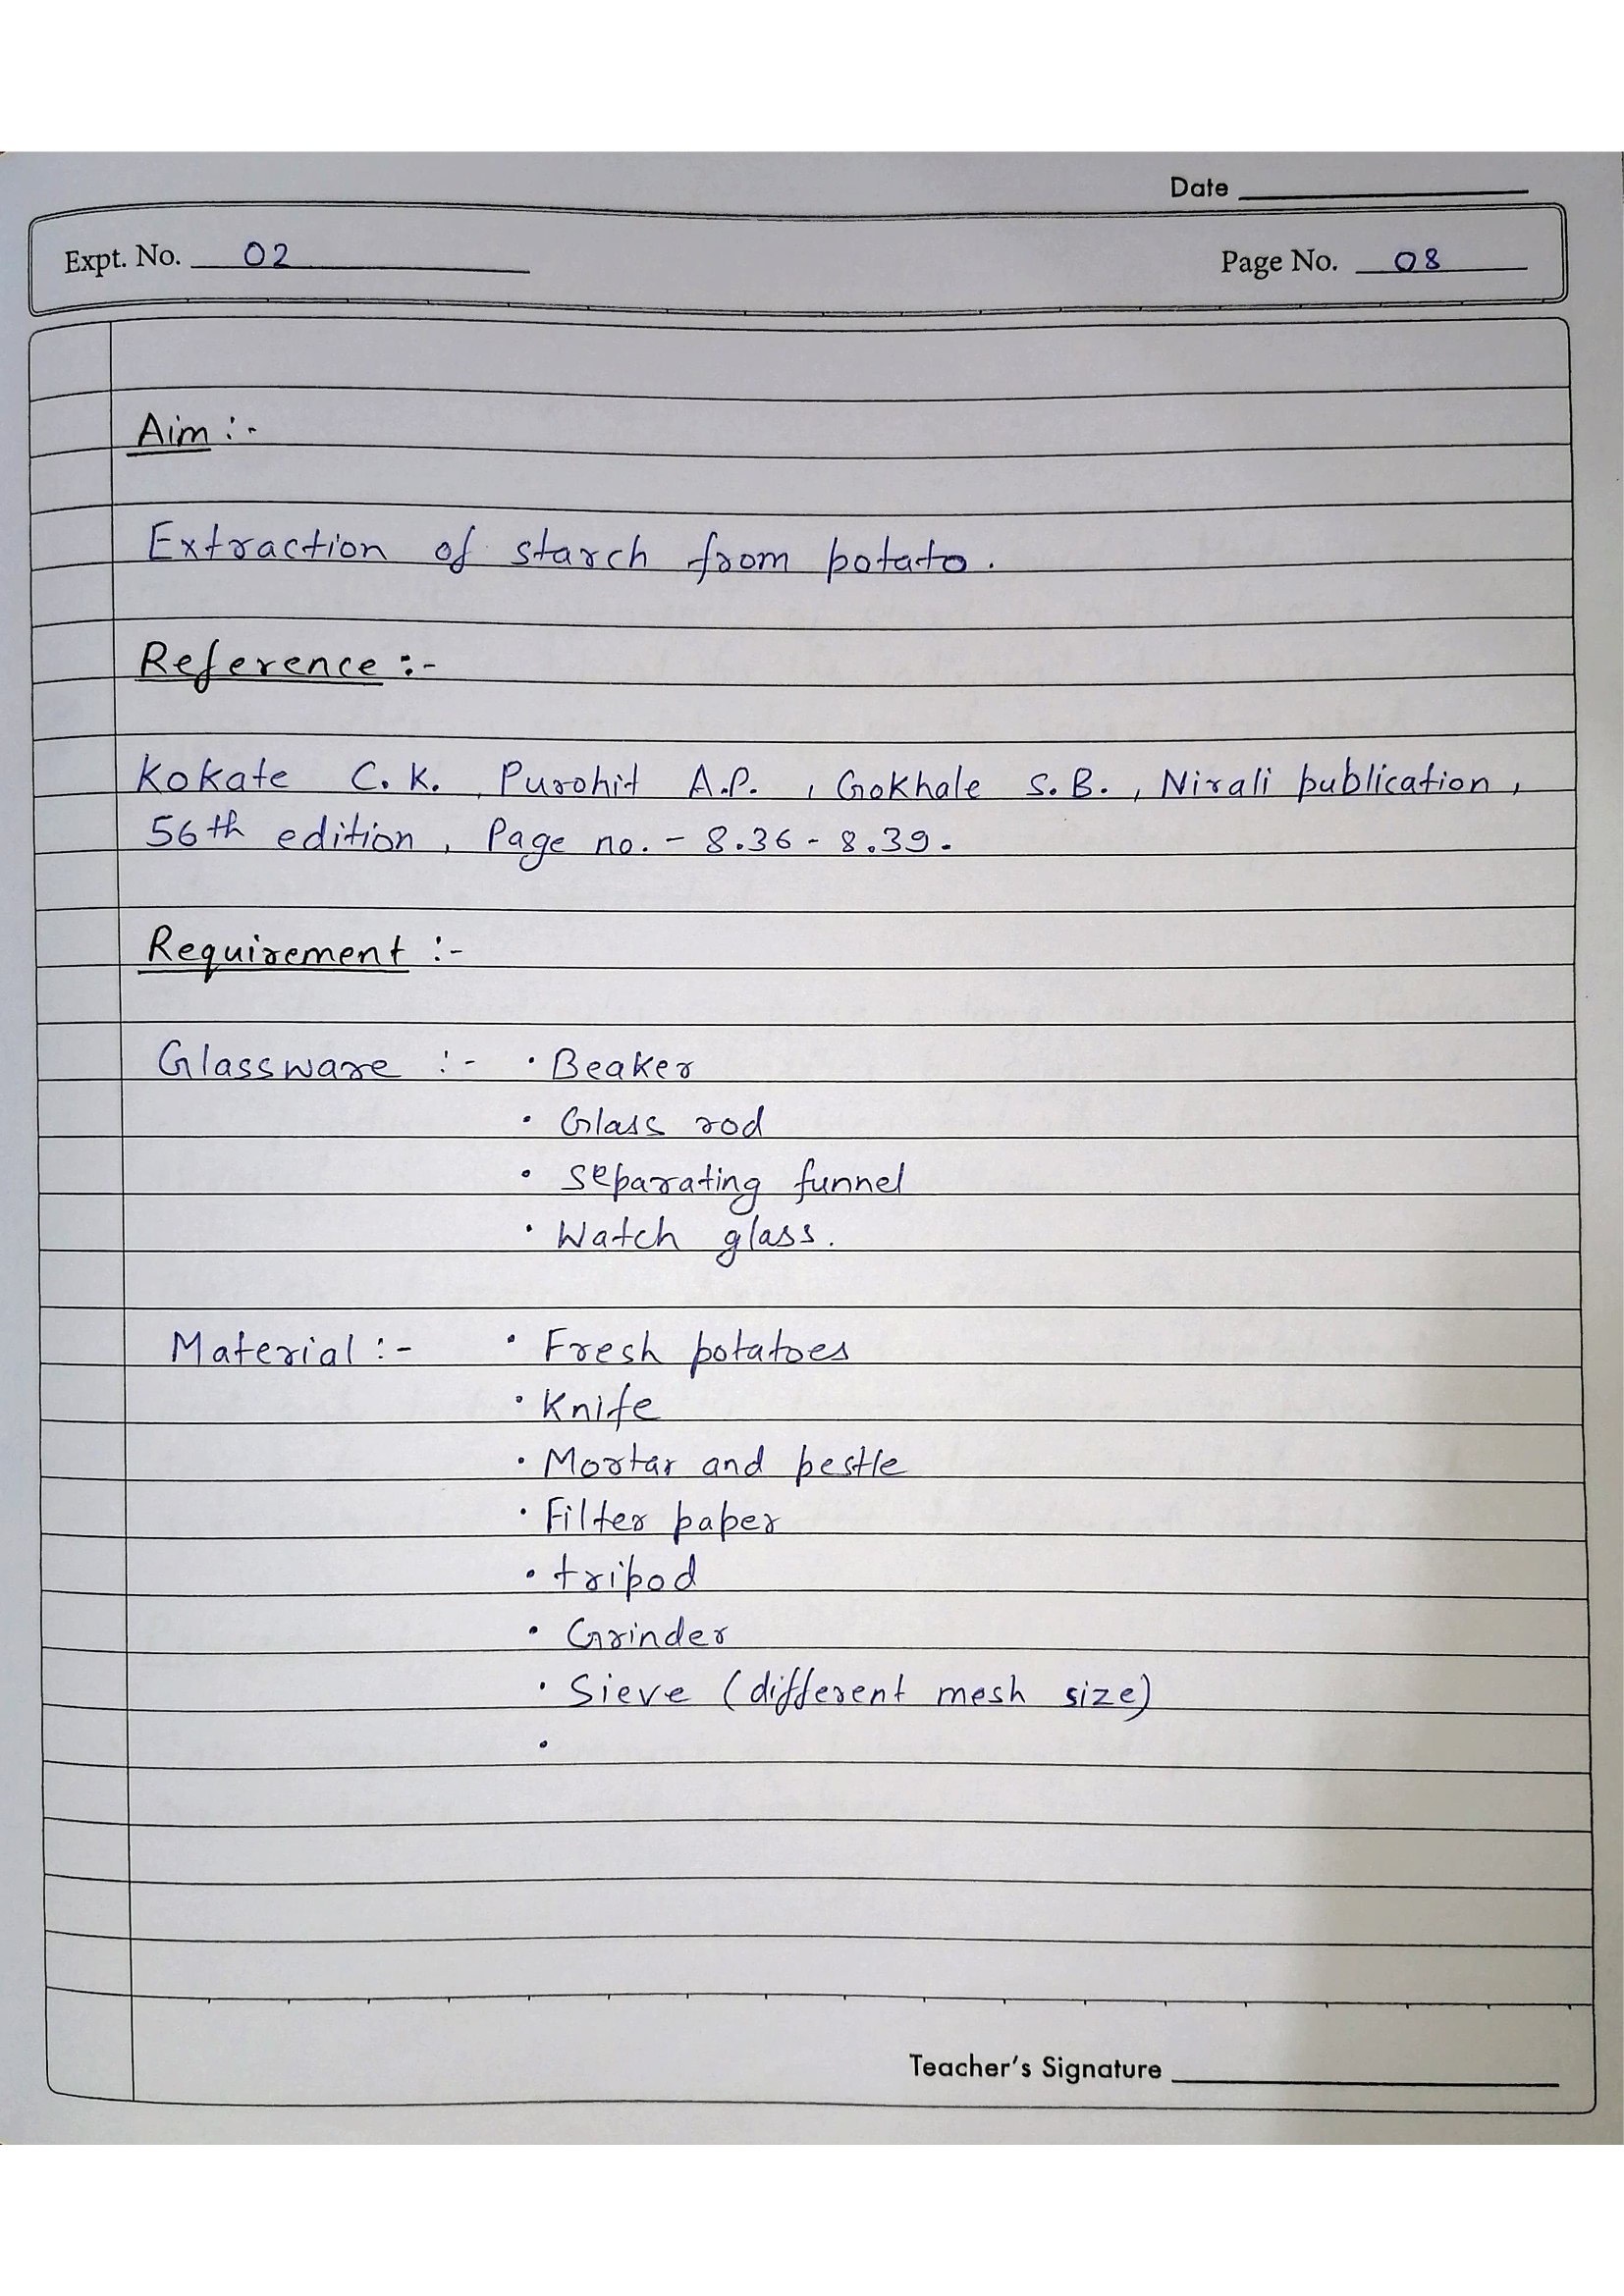 Date
Expt. No. 02 Page No. 08
Aim :-
Extraction of starch from potato.
Reference :-
Kokate C.K., Purohit A.P., Gokhale S.B., Nirali publication,
56th edition, Page no. - 8.36 - 8.39.
Requirement :-
Glassware :- • Beaker
• Glass rod
• Separating funnel
• Watch glass.
Material :- • Fresh potatoes
• Knife
• Mortar and pestle
• Filter paper
• tripod
• Grinder
• Sieve (different mesh size)
•
Teacher's Signature